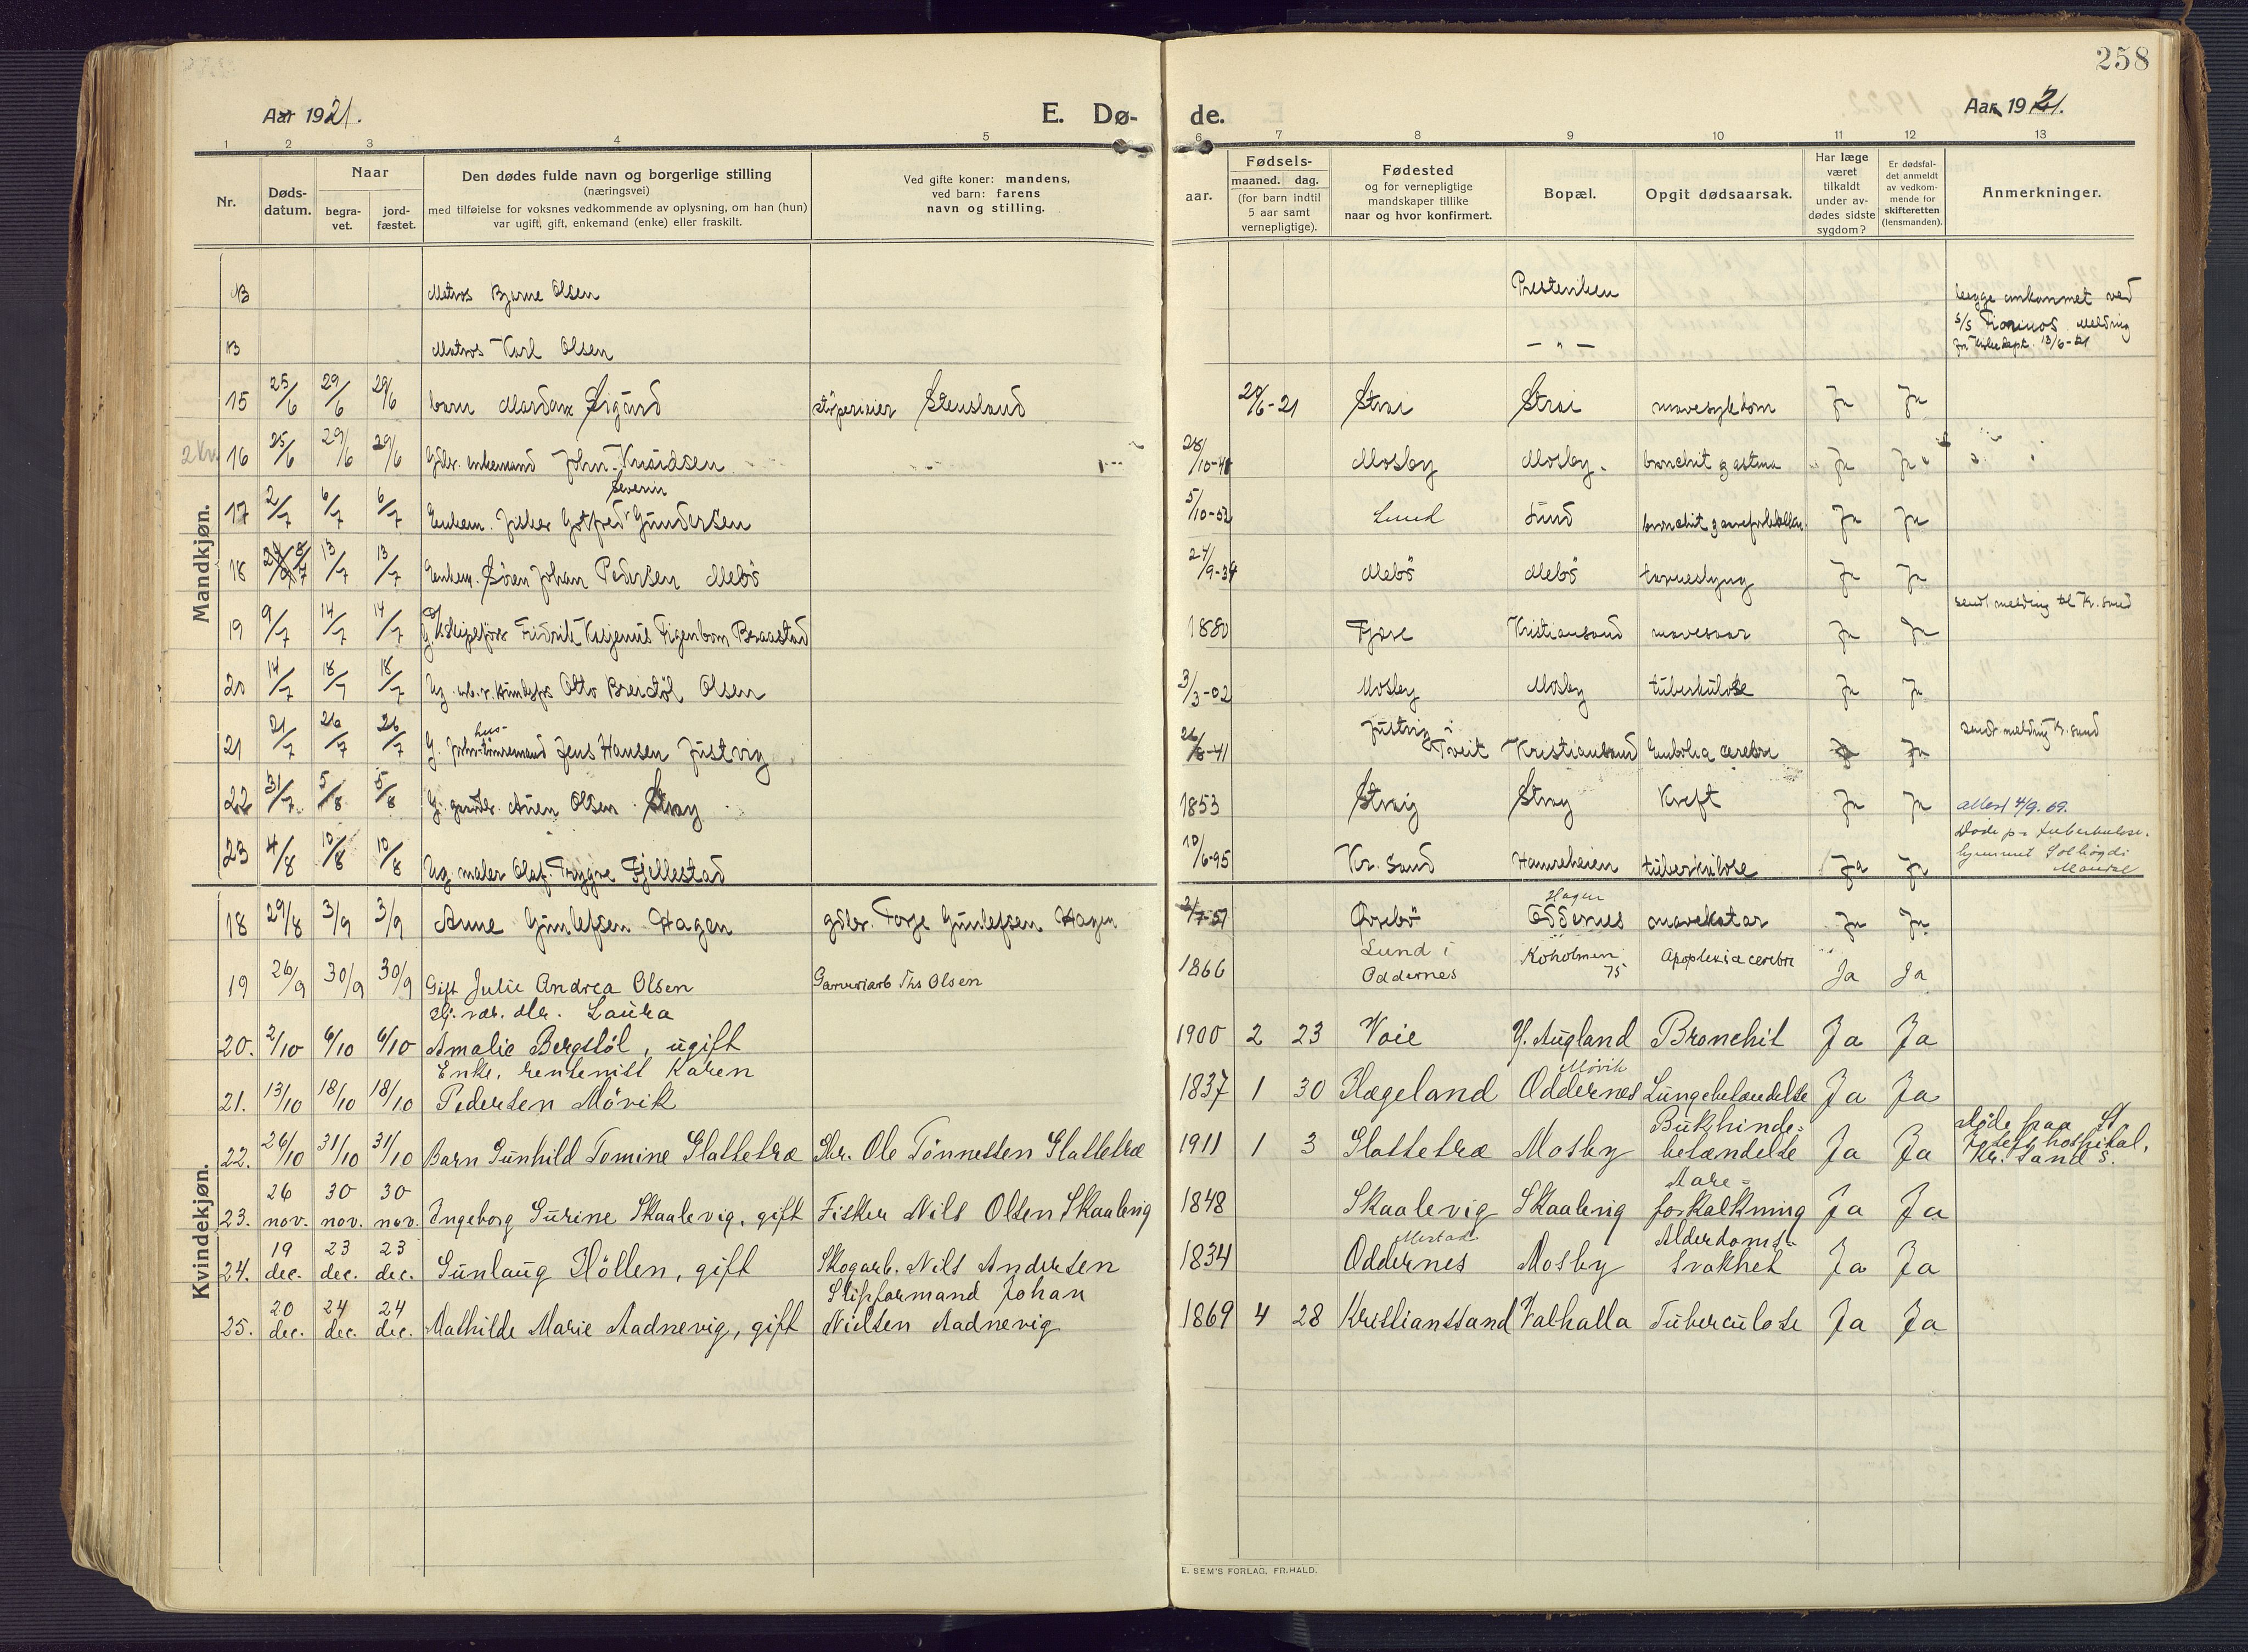 258
Aar 1921. E. Dø- de. Aar 1921.
1 2 3 4 5 6 7 8 9 10 11 12 13
Nr.
Døds-
datum.
Naar
begra-
vet.
jord-
fæstet.
Den dødes fulde navn og borgerlige stilling
(næringsvei)
med tilføielse for voksnes vedkommende av oplysning, om han (hun)
var ugift, gift, enkemand (enke) eller fraskilt.
Ved gifte koner: mandens,
ved barn: farens
navn og stilling.
aar.
Fødsels-
maaned. dag.
(for barn indtil
5 aar samt
vernepligtige).
Fødested
og for vernepligtige
mandskaper tillike
naar og hvor konfirmert.
Bopæl.
Opgit dødsaarsak.
Har læge
været
tilkaldt
under av-
dødes sidste
sygdom?
Er dødsfal-
det anmeldt
av vedkom-
mende for
skifteretten
(lensmanden).
Anmerkninger.
Mandkjøn.
NB Matros Bjarne Olsen begge omkommet ved
NB Matros Karl Olsen — " — S/S Melding 13/6-21
15 25/6 29/6 29/6 barn Sigurd Stensland 6-21 Strai Strai mavesykdom Ja Ja
2 Kv. 16 25/6 29/6 29/6 Gbr. enkemand John Knudsen Mosby Mosby. bronchit g astma Ja Ja
Severin
17 2/7 6/7 6/7 Enkem. fisker Gotfred Gundersen 5/10-52 Lund Lund bronchit Ja Ja
18 8/7 13/7 13/7 Enkem. Søren Johan Pedersen Mebö 24/9-34 Mebö Mebö Ja Ja
sendt melding til Kr.sand
19 9/7 14/7 14/7 Fredrik Braastad 1880 Fjære Kristiansand mavesaar Ja Ja
20 14/7 18/7 18/7 Ug. Otto Breidøl Olsen 3/3-02 Mosby Mosby tuberkulose Ja Ja
hus-
Justvig i sendt melding Kr.sand
21 21/7 26/7 26/7 G. tømmermand Jens Hansen Justvig 26/8-41 Tveit Kristiansand Embolia cerebri Ja Ja
22 31/7 5/8 5/8 G. gaardbr. Aven Olsen Stray 1853 Straig Stray Kreft Ja Ja attest 4/9.69.
23 4/8 10/8 10/8 Ug. maler Olaf Trygve Fjellestad 10/6-95 Kr.sand Hamreheien tuberkulose Ja Ja Døde på tuberkulose-
hjemmet Solhøgda
Mandal
Kvindekjøn.
Hagen
18 29/8 3/9 3/9 Anne Gunlefsen Hagen gdbr. Torje Gunlefsen Hagen 2/7-51 Øvrebö Oddernes mavekatar Ja Ja
Lund i
19 26/9 30/9 30/9 Gift Julie Andrea Olsen Garveriarb Ths Olsen 1866 Oddernes Koholmen 75 Apoplexia cerebri Ja Ja
Laura
20. 2/10 6/10 6/10 Amalie Bergstöl, ugift 1900 2 23 Voie Y. Augland Bronchit Ja Ja
Enke, rentenist Karen Møvik
21. 13/10 18/10 18/10 Pedersen Mövik 1837 1 30 Hægeland Oddernes Lungebetændelse Ja Ja
Bukhinde= Døde paa St
22. 26/10 31/10 31/10 Barn Gunhild Tomine Slattetræ Gbr. Ole Tönnessen Slattetræ 1911 1 3 Slattetræ Mosby betændelse Ja Ja Josefs hospital,
Kr.sand S.
Aare=
23. 26 nov. 30 nov. 30 nov. Ingeborg Surine Skaalevig, gift Fisker Nils Olsen Skaalevig 1848 Skaalevig Skaalevig forkalkning Ja Ja
Mestad Alderdoms-
24. 19 dec. 23 dec. 23 dec. Gunlaug Höllen, gift Skogarb. Nils Andersen 1834 Oddernes Mosby svakhet Ja Ja
Slipformand Johan
25. 20 dec. 24 dec. 24 dec. Mathilde Marie Aadnevig, gift Nielsen Aadnevig 1869 4 28 Kristianssand Valhalla Tuberculose Ja Ja
E. SEM'S FORLAG, FR.HALD.